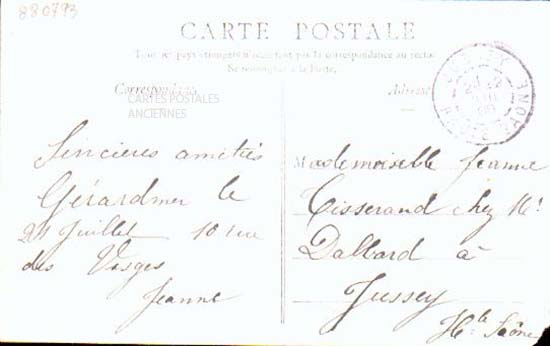 880793
CARTE POSTALE
Tous les pays étrangers n'acceptent pas la correspondance au recto
Se renseigner à la Poste.
Correspondance
Adresse
CARTES POSTALES
ANCIENNES
Sincères amitiés
Gérardmer le
21 Juillet 10 rue
des Vosges
Jeanne
Mademoiselle Jeanne
Tisserand chez Mr
Dalbard à
Jussey
Hte Saône
HAUTE SAONE